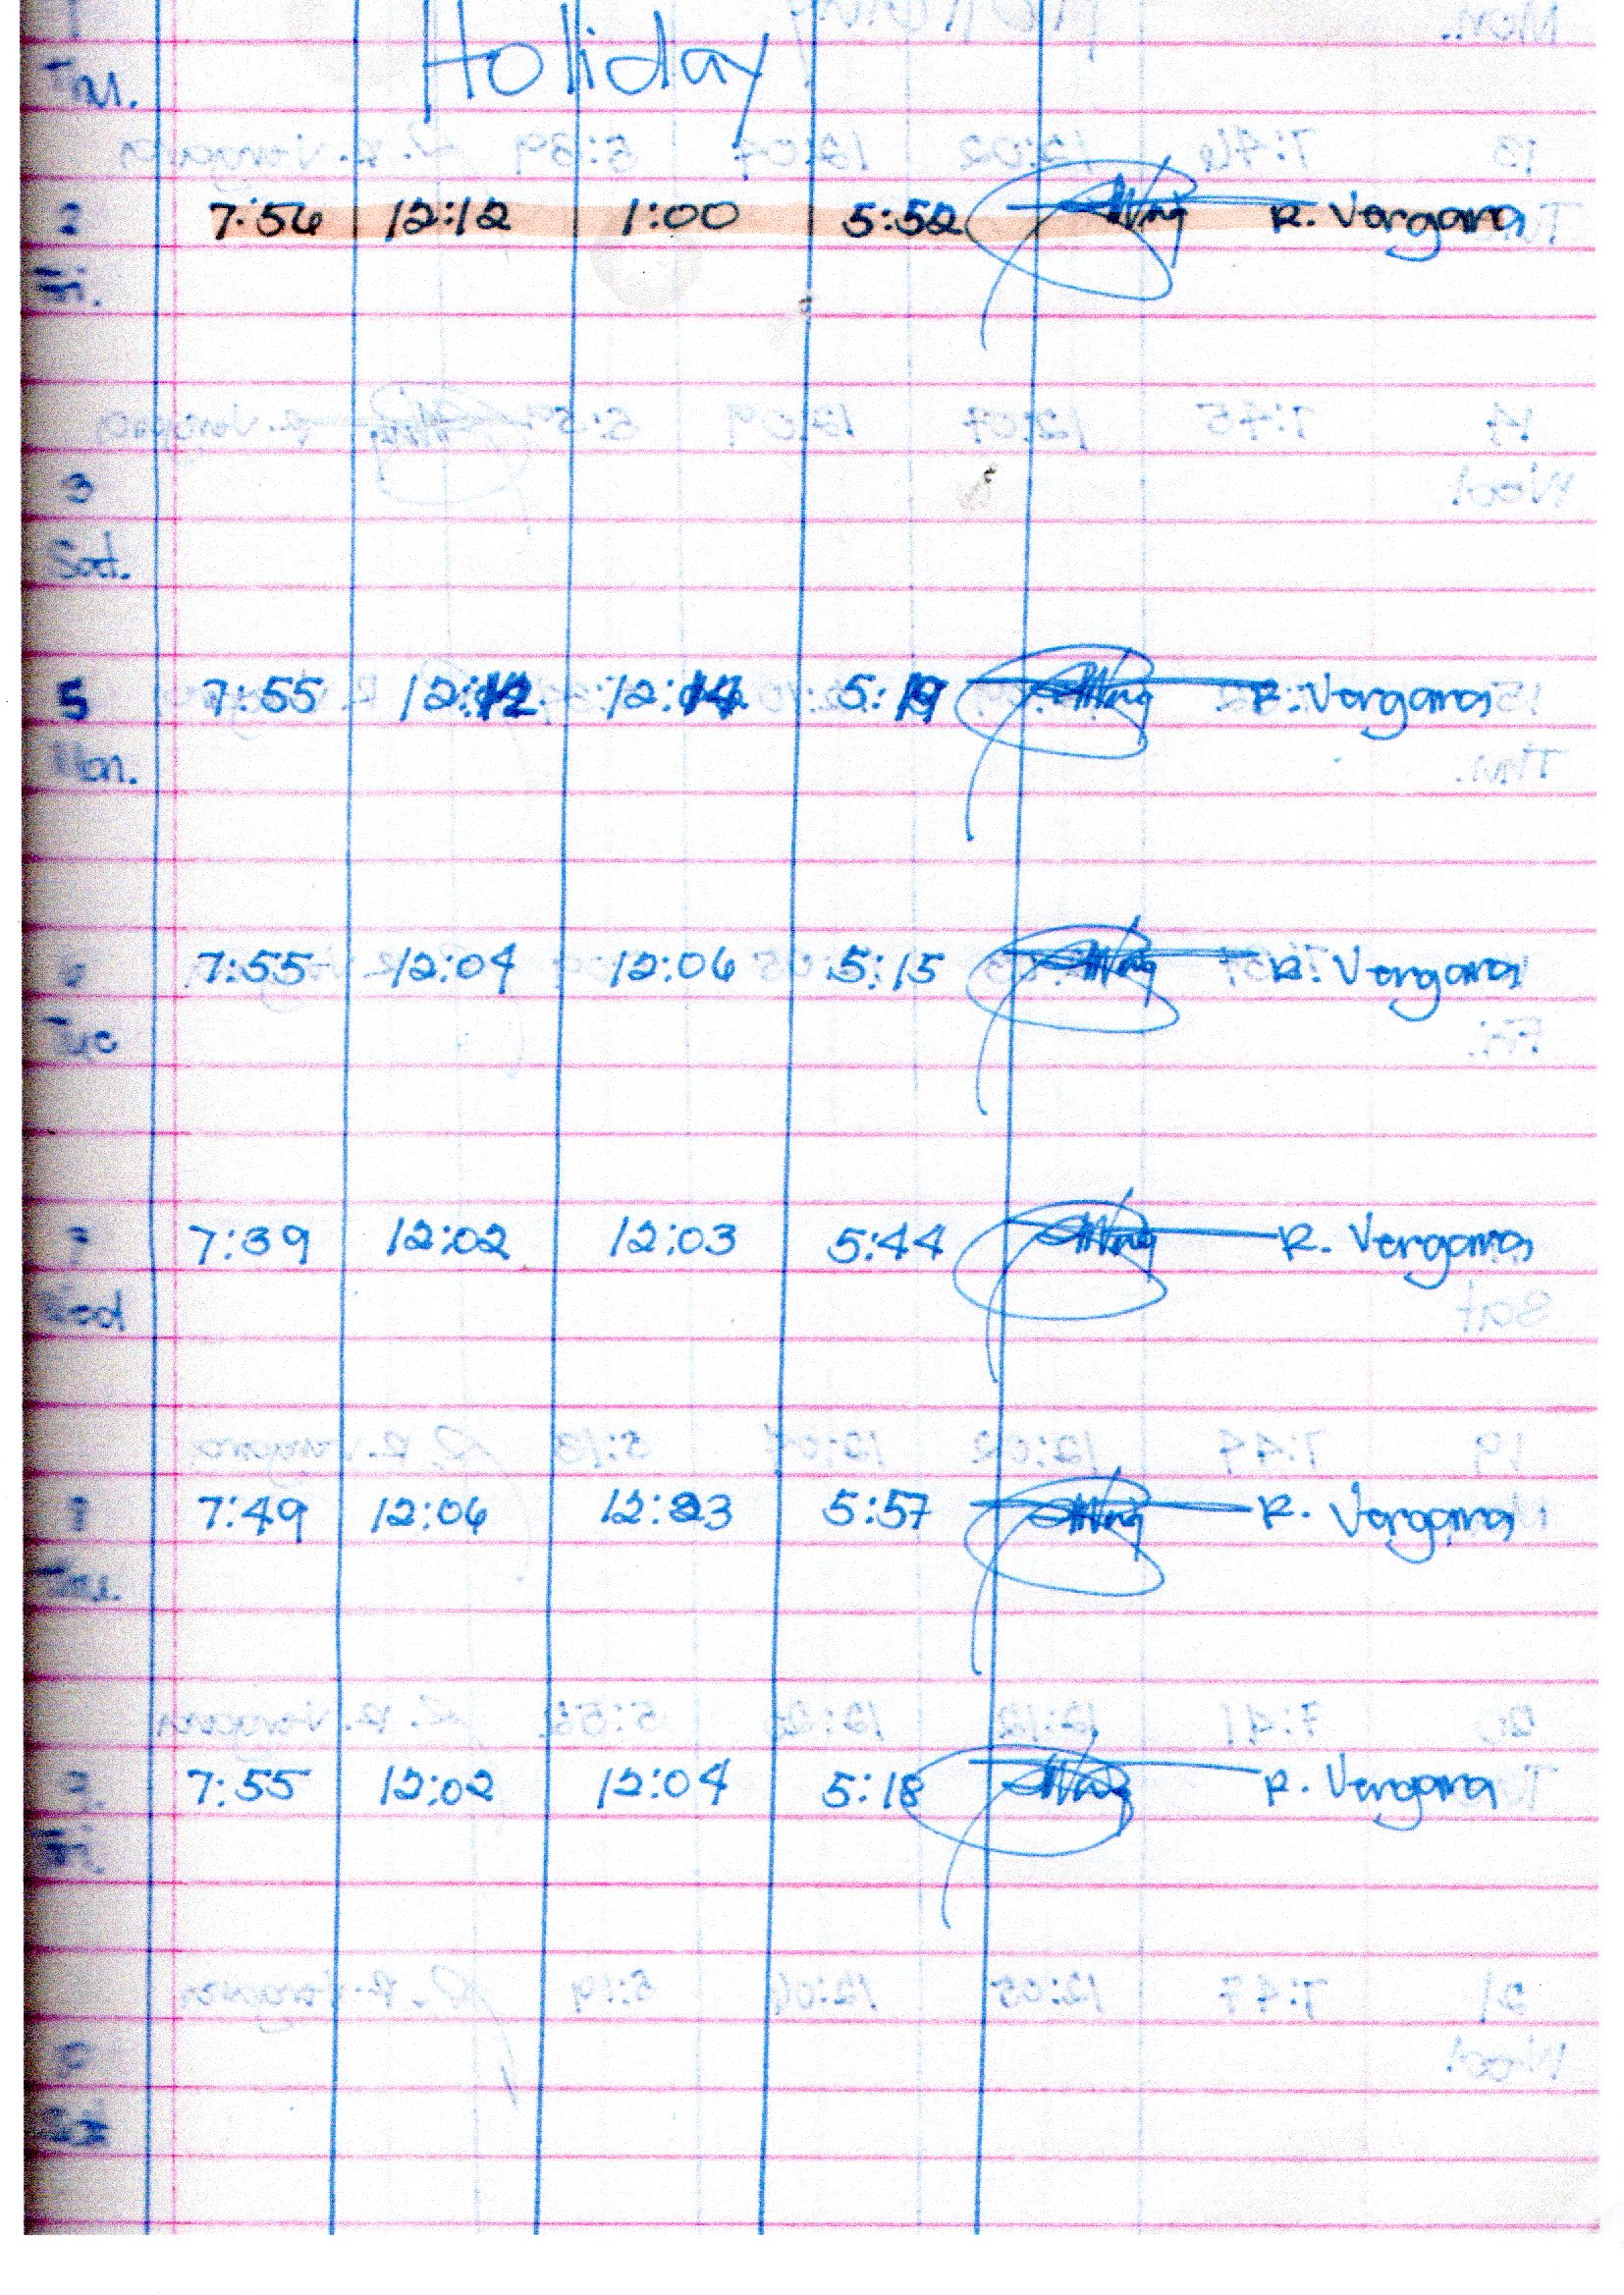 1 Holiday
Thu.
2 7:56 12:12 1:00 5:52 R. Vergara
Fri.
3
Sat.
5 7:55 12:12 12:14 5:19 R. Vergara
Mon.
6 7:55 12:04 12:06 5:15 R. Vergara
Tue
7 7:39 12:02 12:03 5:44 R. Vergara
Wed
7:49 12:06 12:23 5:57 R. Vergara
Thu.
9 7:55 12:02 12:04 5:18 R. Vergara
Fri